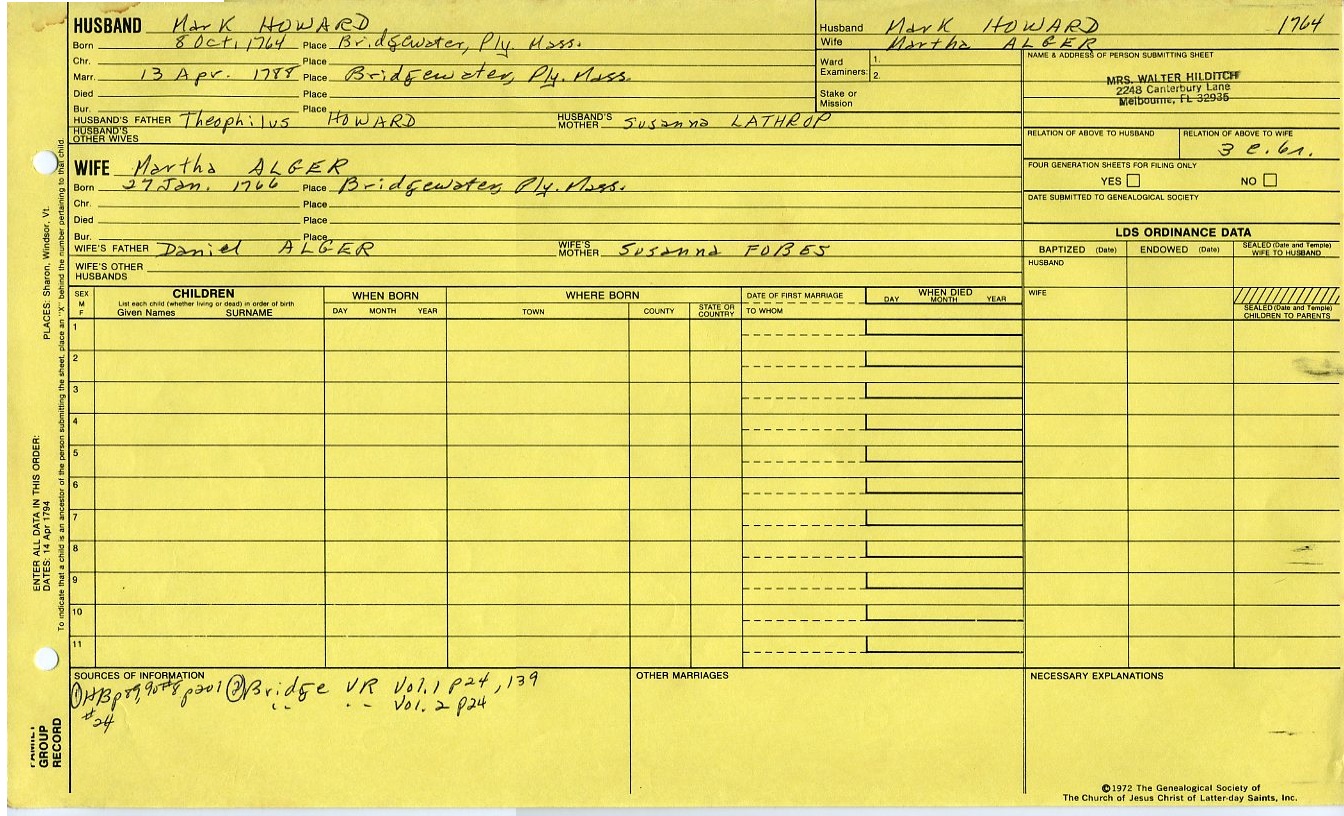 HUSBAND Mark HOWARD
Born 8 Oct. 1764 Place Bridgewater, Ply. Mass.
Chr. Place
Marr. 13 Apr. 1788 Place Bridgewater, Ply. Mass.
Died Place
Bur. Place
HUSBAND'S FATHER Theophilus HOWARD HUSBAND'S MOTHER Susanna LATHROP
HUSBAND'S OTHER WIVES
Husband Mark HOWARD 1764
Wife Martha ALGER
Ward Examiners: 1.
2.
Stake or Mission
NAME & ADDRESS OF PERSON SUBMITTING SHEET
MRS. WALTER HILDITCH
2248 Canterbury Lane
Melbourne, FL 32935
RELATION OF ABOVE TO HUSBAND RELATION OF ABOVE TO WIFE
3 c. 6r.
FOUR GENERATION SHEETS FOR FILING ONLY
YES NO
DATE SUBMITTED TO GENEALOGICAL SOCIETY
WIFE Martha ALGER
Born 27 Jan. 1766 Place Bridgewater, Ply. Mass.
Chr. Place
Died Place
Bur. Place
WIFE'S FATHER Daniel ALGER WIFE'S MOTHER Susanna FOBES
WIFE'S OTHER HUSBANDS
LDS ORDINANCE DATA
BAPTIZED (Date) ENDOWED (Date) SEALED (Date and Temple) WIFE TO HUSBAND
HUSBAND
WIFE
SEALED (Date and Temple) CHILDREN TO PARENTS
SEX M F
CHILDREN
List each child (whether living or dead) in order of birth
Given Names SURNAME
WHEN BORN
DAY MONTH YEAR
WHERE BORN
TOWN COUNTY STATE OR COUNTRY
DATE OF FIRST MARRIAGE
TO WHOM
WHEN DIED
DAY MONTH YEAR
1
2
3
4
5
6
7
8
9
10
11
SOURCES OF INFORMATION
① HB p89,90 #8 p201 ② Bridge VR Vol. 1 p24, 139
#24 " " Vol. 2 p24
OTHER MARRIAGES
NECESSARY EXPLANATIONS
©1972 The Genealogical Society of
The Church of Jesus Christ of Latter-day Saints, Inc.
FAMILY GROUP RECORD
ENTER ALL DATA IN THIS ORDER:
DATES: 14 Apr 1794
PLACES: Sharon, Windsor, Vt.
To indicate that a child is an ancestor of the person submitting the sheet, place an "X" behind the number pertaining to that child.